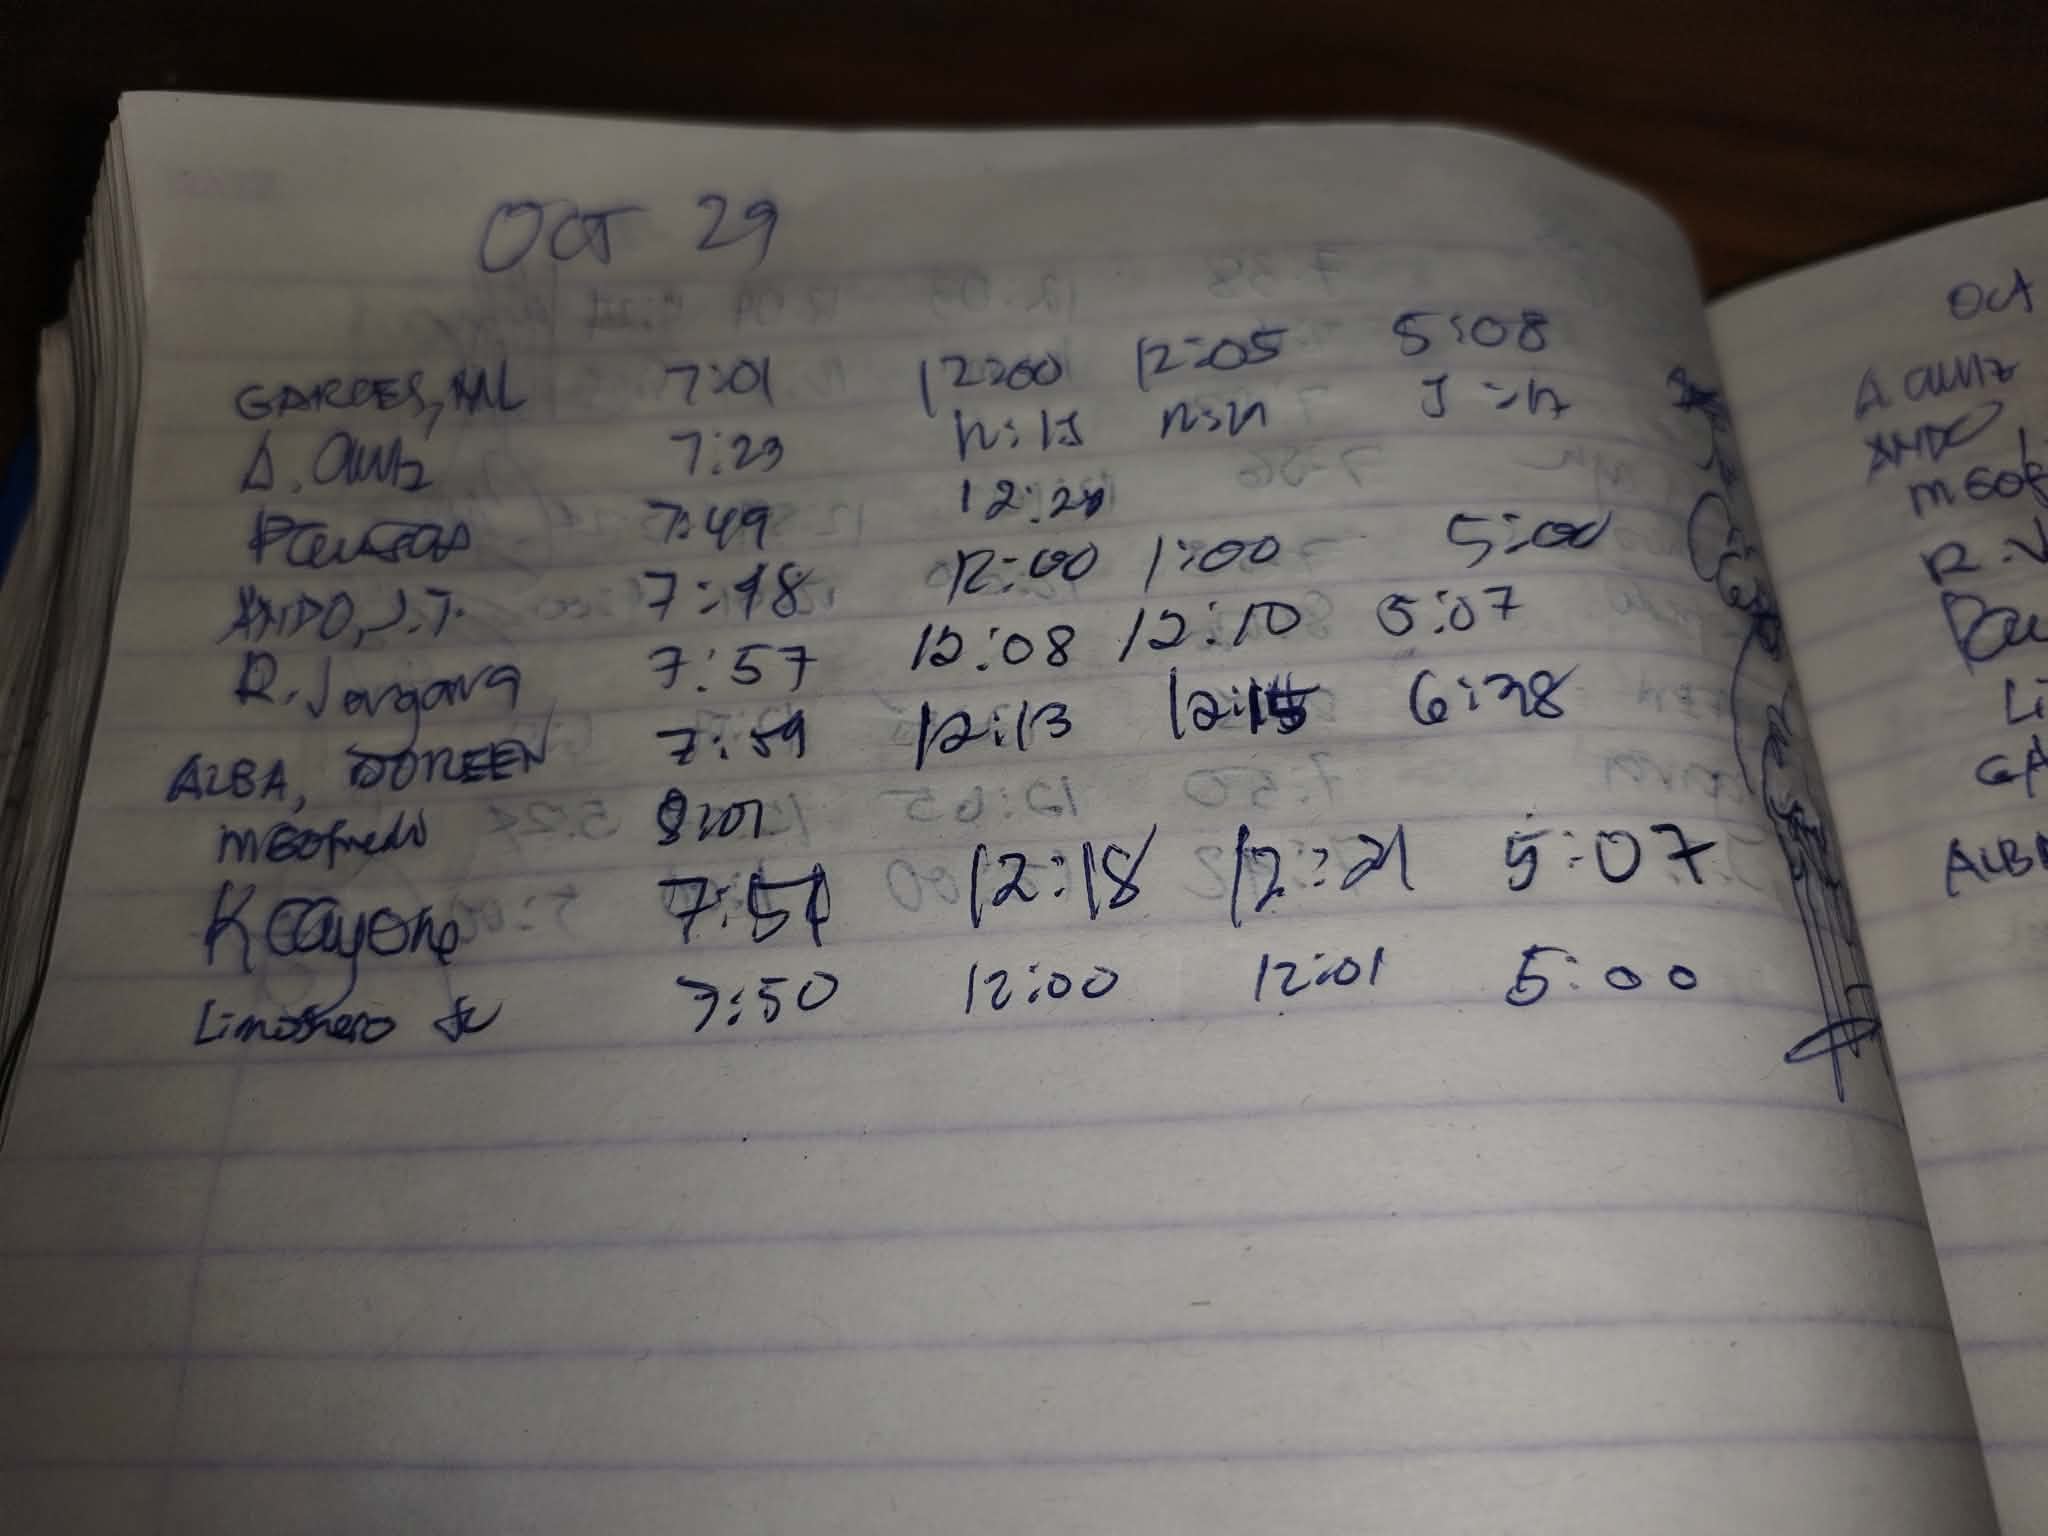 OCT 29
GARCES, ML 7:01 12:00 12:05 5:08
A. 7:23 12:15 12:21 5:17
7:49 12:28
ANDO, J.T. 7:48 12:00 1:00 5:00
R. Vergara 7:57 12:08 12:10 5:07
ALBA, DOREEN 7:59 12:13 12:15 6:38
meofredo 8:01
K Cayone 7:51 12:18 12:21 5:07
Limosnero 7:50 12:00 12:01 5:00
Oct
A
ANDO
meof
R. V
Pau
Li
GA
ALBA